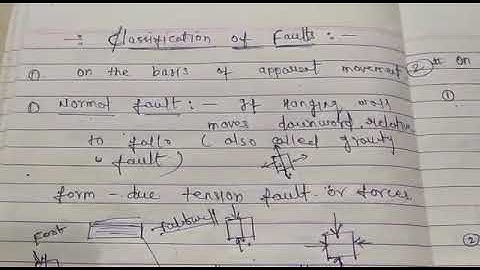 -: Classification of Faults :-
① on the basis of apparent movement ② # on
① Normal fault :- If Hanging wall
moves downword relative
to falls ( also called gravity
fault )
form - due tension fault or forces.
foot footwall
①
②